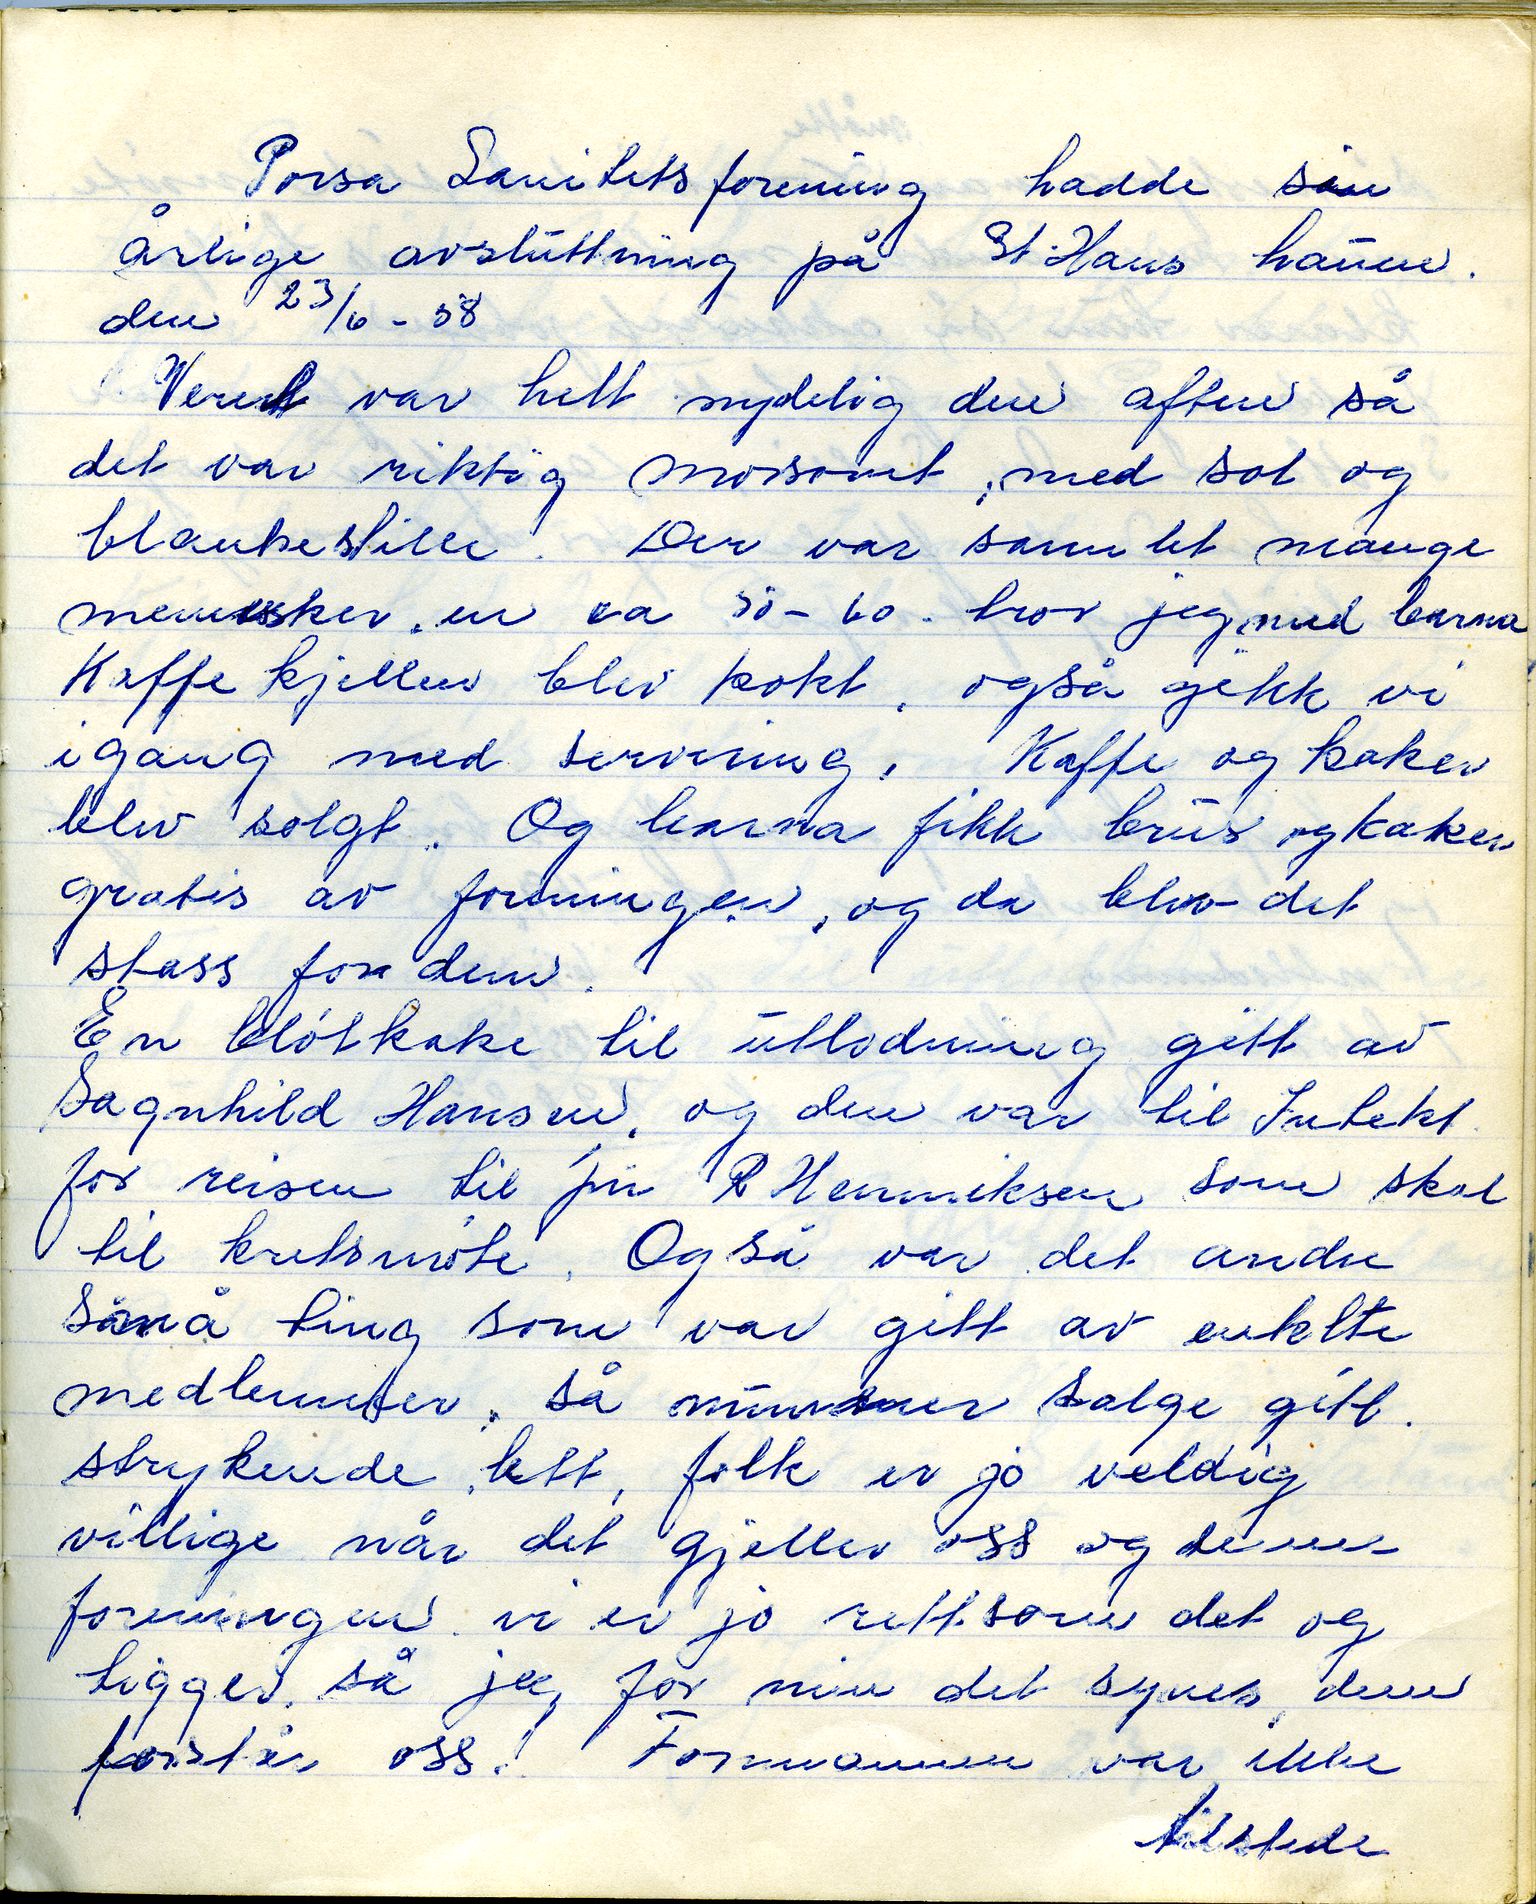 Porsa Sanitetsforening hadde sin
årlige avsluttning på St. Hans haUen.
den 23/6 - 58
Veret var helt nydelig den aften så
det var riktig morsomt, med sol og
blankestille. Der var samlet mange
mennesker. en ca 50 - 60. tror jeg, med barna
Kaffe kjellen blev kokt, også gikk vi
igang med servering, Kaffe og kaker
blev solgt. Og barna fikk brus og kaker
gratis av foreningen, og da blev det
stass for dem.
En bløtkake til utlodning gitt av
Sagnhild Hansen, og den var til Intekt
for reisen til fru R Henriksen som skal
til kretsmøte. Også var det andre
små ting som var gitt av enkelte
medlemmer, så nummer salge gikk.
strykende lett, folk er jo veldig
villige når det gjeller oss og denne
foreningen vi er jo rett som det og
ligger, så jeg for min del synes, dem
forstår oss! Formannen var ikke
tilstede